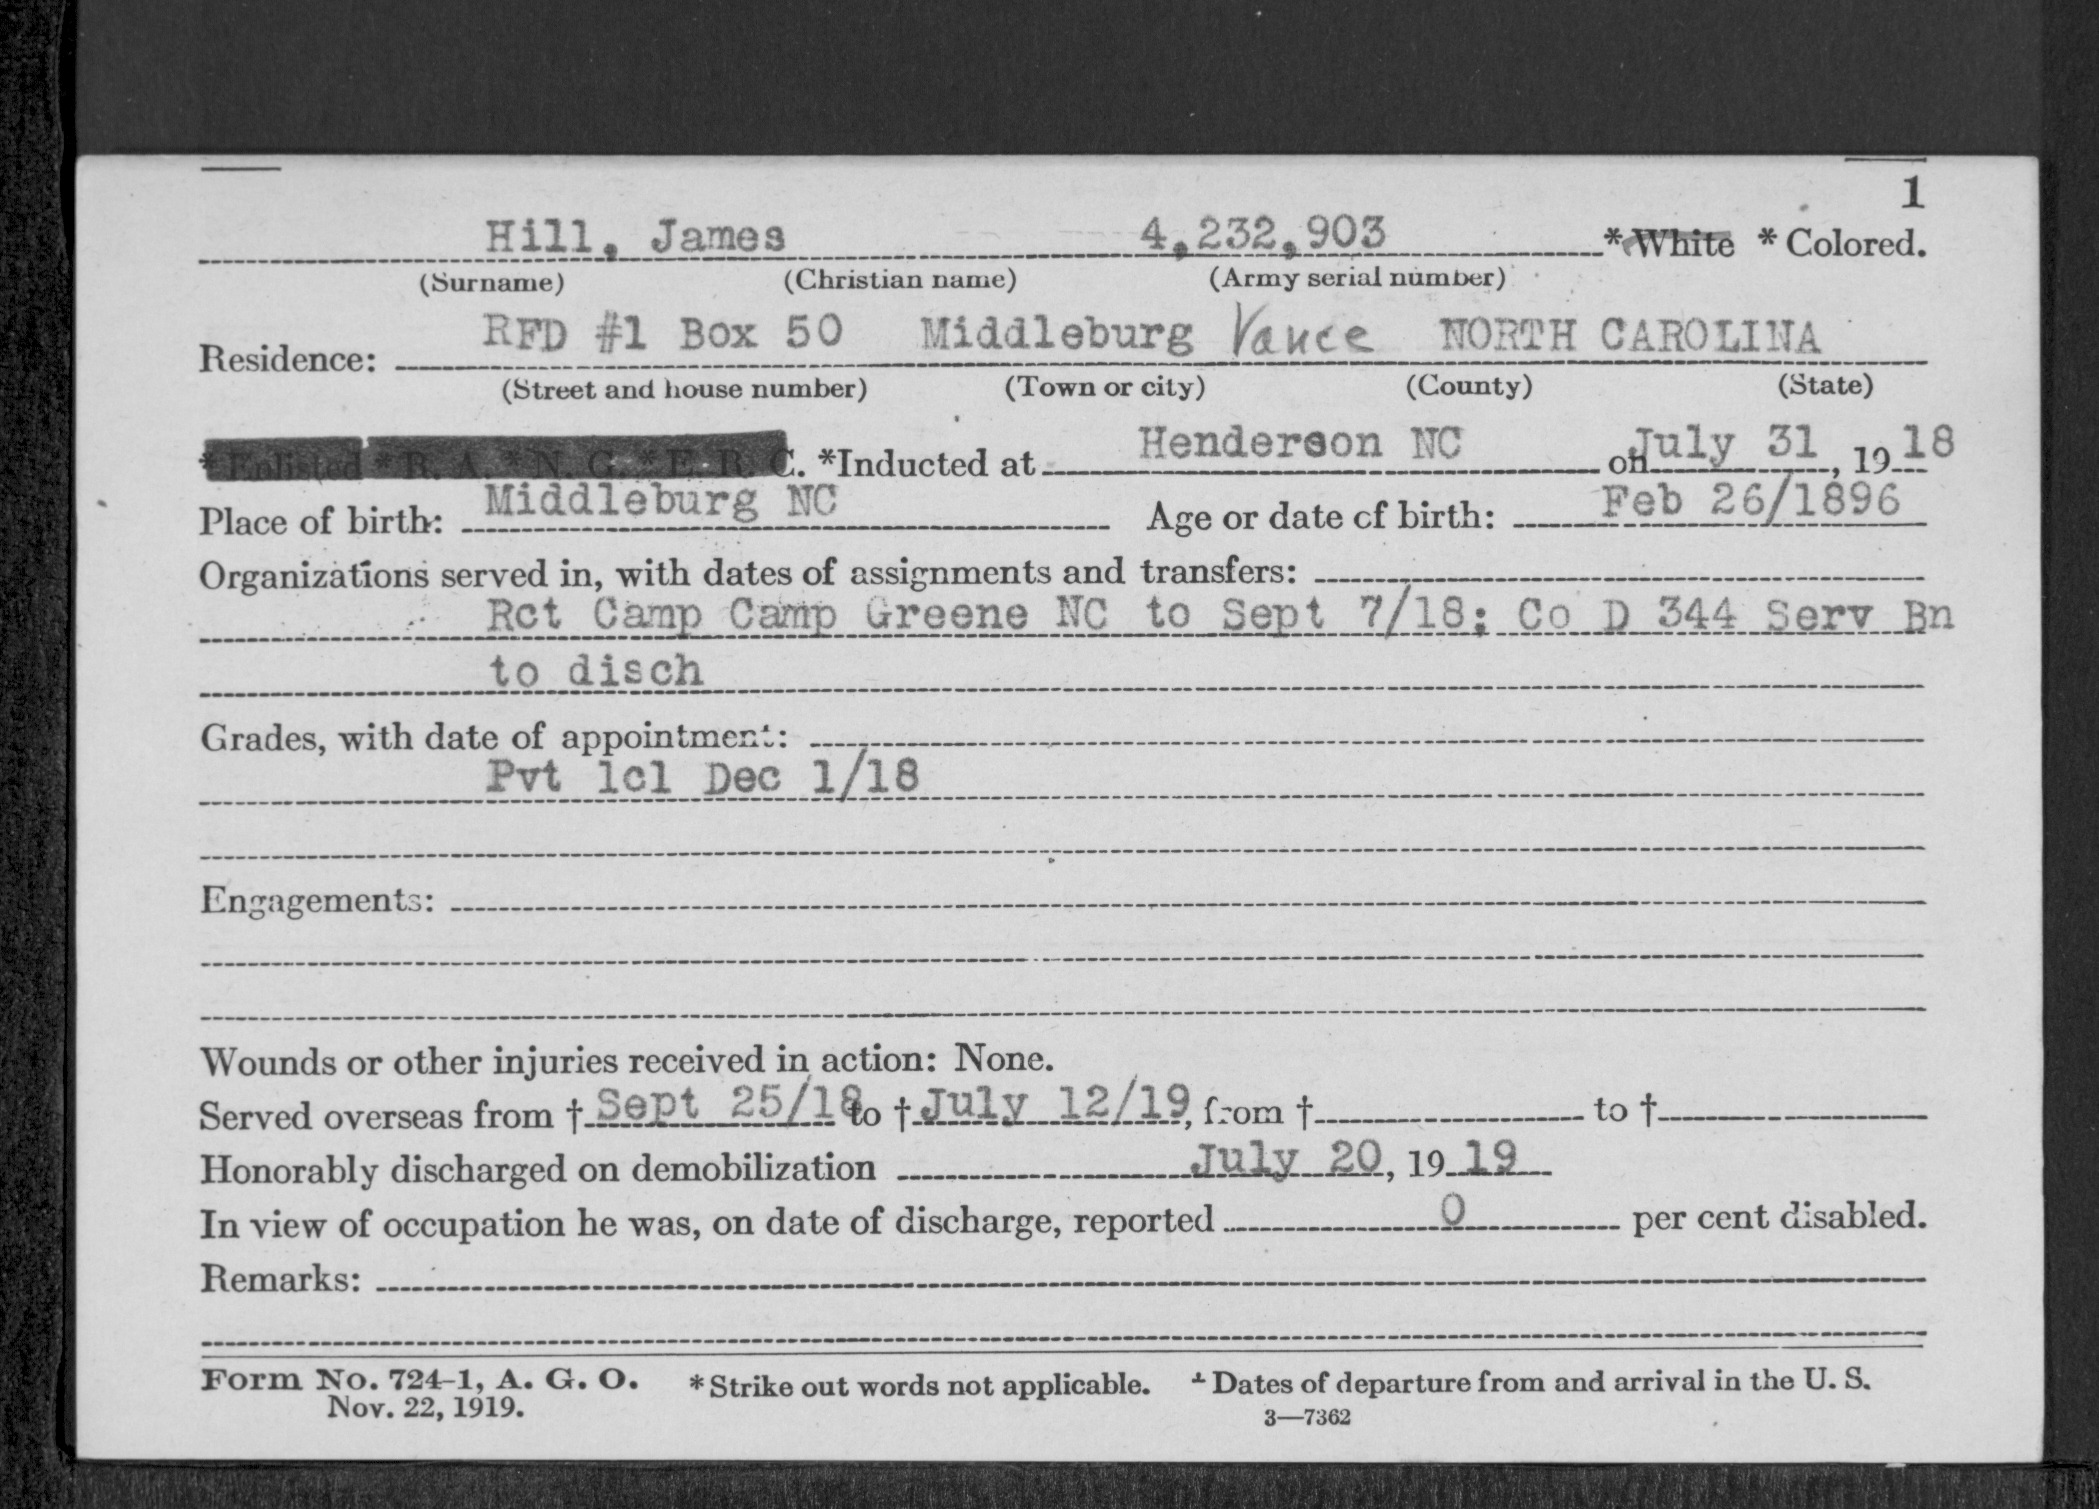 1
Hill, James 4,232,903 *White *Colored.
(Surname) (Christian name) (Army serial number)
Residence: RFD #1 Box 50 Middleburg Vance NORTH CAROLINA
(Street and house number) (Town or city) (County) (State)
*Enlisted *R. A. *N. G. *E. R. C. *Inducted at Henderson NC on July 31, 19 18
Place of birth: Middleburg NC Age or date of birth: Feb 26/1896
Organizations served in, with dates of assignments and transfers:
Rct Camp Camp Greene NC to Sept 7/18; Co D 344 Serv Bn
to disch
Grades, with date of appointment:
Pvt 1cl Dec 1/18
Engagements:
Wounds or other injuries received in action: None.
Served overseas from † Sept 25/18 to † July 12/19, from † to †
Honorably discharged on demobilization July 20, 19 19
In view of occupation he was, on date of discharge, reported 0 per cent disabled.
Remarks:
Form No. 724-1, A. G. O. *Strike out words not applicable. † Dates of departure from and arrival in the U. S.
Nov. 22, 1919. 3—7362